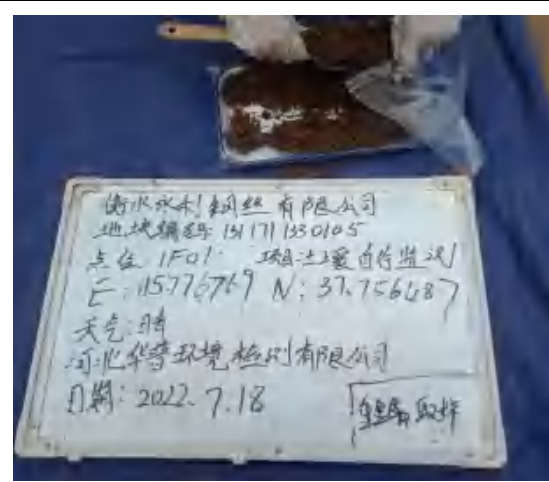 衡水永利钢丝有限公司
地块编码: 1311711330105
点位 1F01 项目:土壤自行监测
E: 115.776769 N: 37.756487
天气: 晴
河北华普环境检测有限公司
日期: 2022.7.18
重金属取样